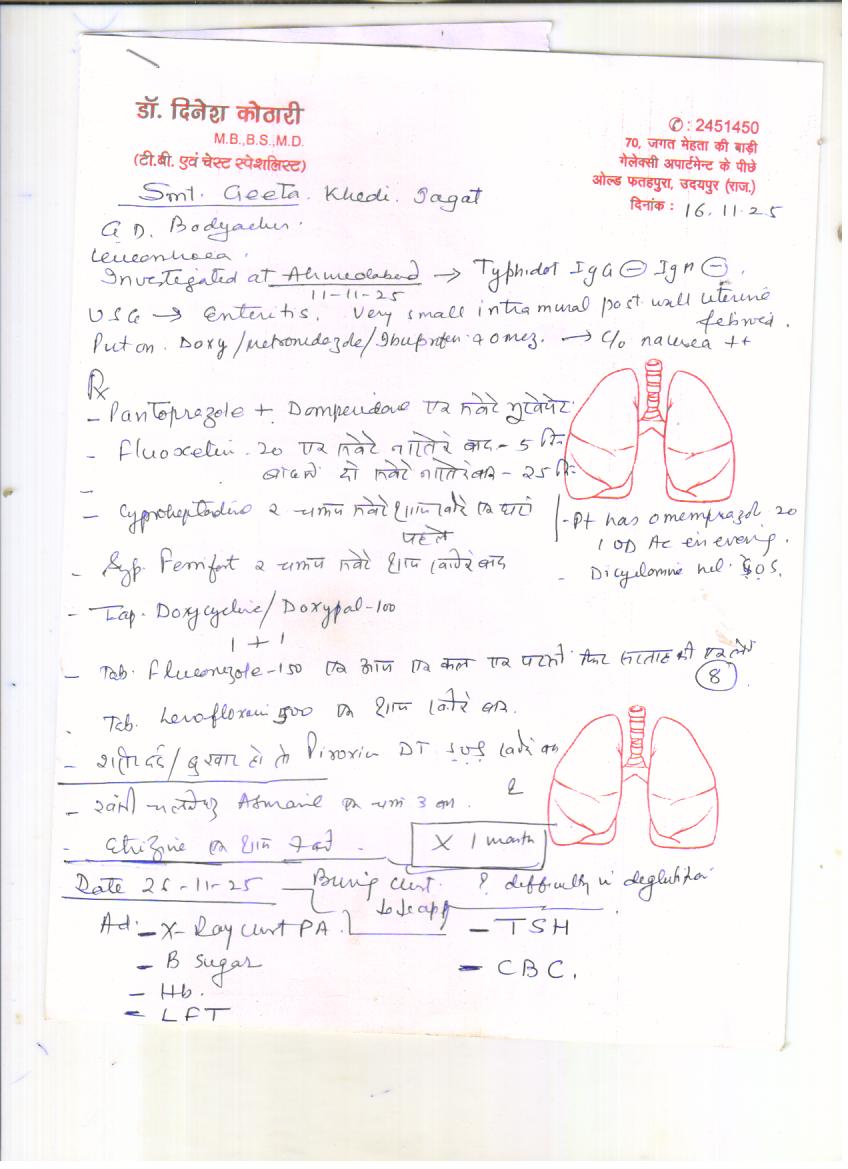 डॉ. दिनेश कोठारी
M.B.,B.S.,M.D.
(टी.बी. एवं चेस्ट स्पेशलिस्ट)
✆: 2451450
70, जगत मेहता की बाड़ी
गेलेक्सी अपार्टमेन्ट के पीछे
ओल्ड फतहपुरा, उदयपुर (राज.)
दिनांक : 16.11.25
Smt. Geeta. Khedi. Jagat
G D.
Investigated at Ahmedabad → Typhidot IgG ⊖ IgM ⊖.
11-11-25
USG → Enteritis. Very small intramural post wall uterine
Put on. Doxy/Metronidazole/Ibuprofen + Omez. → C/o nausea ++
Rx
- Pantoprazole + Domperidone एक सवेरे भूखे पेट
- Fluoxetin. 20 एक सवेरे नाश्ते के बाद - 5 दिन
बाद में दो सवेरे नाश्ते के बाद - 25 दिन
- Cyproheptadine २ चम्मच सवेरे शाम खाने के एक घंटा
पहले
- Pt has omemprazol 20
1 OD AC in evening.
- Syp. Femifort २ चम्मच सवेरे शाम खाने के बाद
- Dicyclomine SOS.
- Tap. Doxycycline/Doxypal-100
1 + 1
- Tab. Fluconazole-150 एक आज एक कल एक परसों फिर सप्ताह में एक लें
8
- Tab. 500 एक शाम खाने के बाद.
- शरीर दर्द/बुखार हो तो DT SOS खाने के बाद
- खांसी चलने पर एक चम्मच 3 बार.
- एक शाम
X 1 month
Date 25-11-25
& difficulty in deglutition
Ad. - X-Ray Chest PA.
- TSH
- B Sugar
- CBC.
- Hb.
- LFT